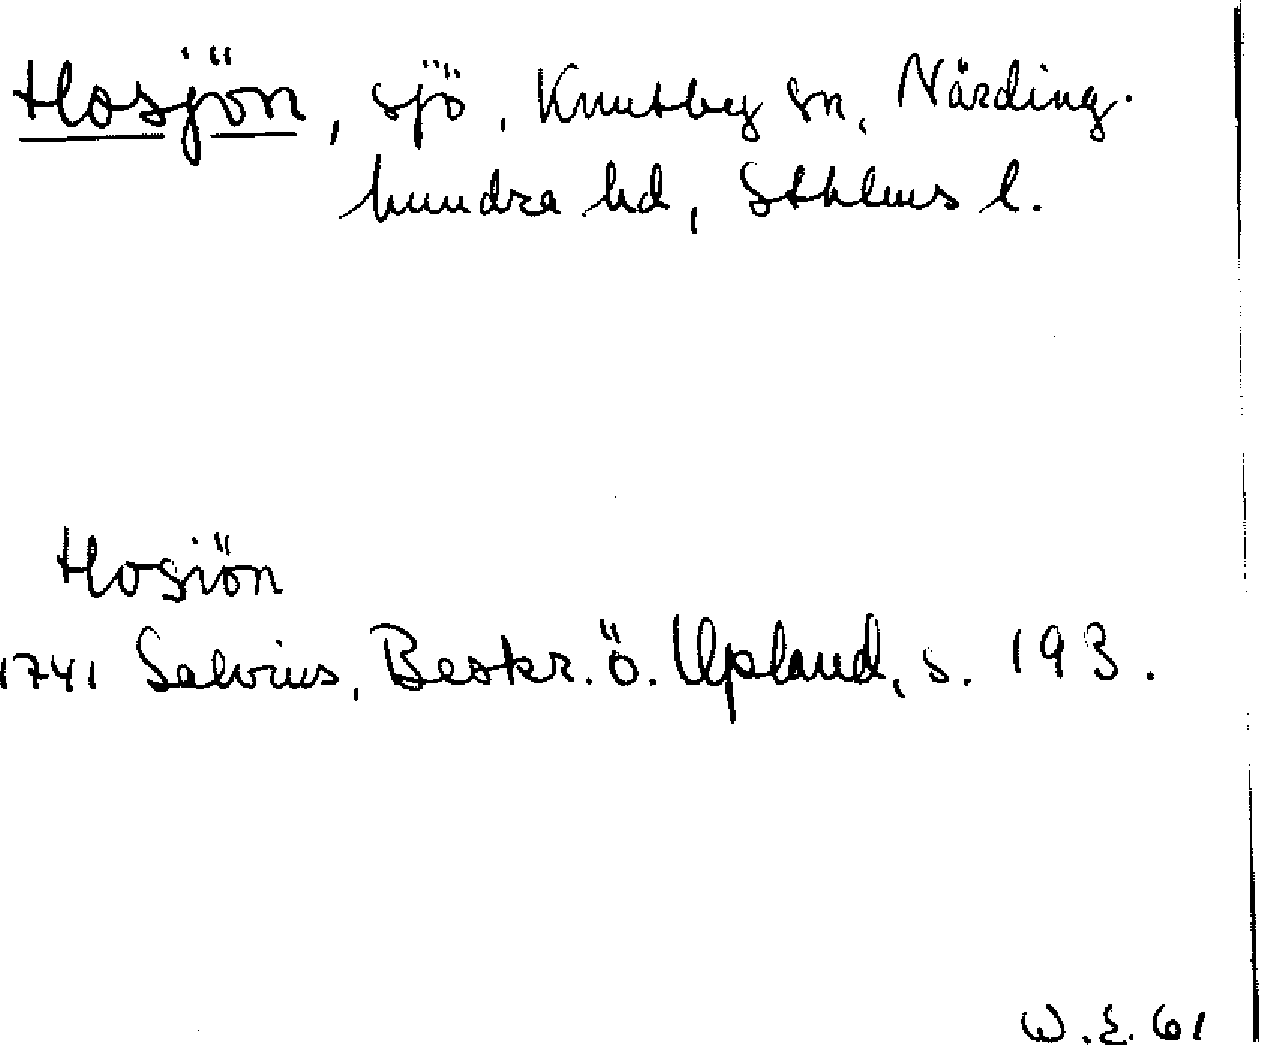 Hosjön, sjö, Knutby sn, Närding-
hundra hd, Sthlms l.
Hosiön
1741 Salvius, Beskr. ö. Upland, s. 193.
W.E. 61